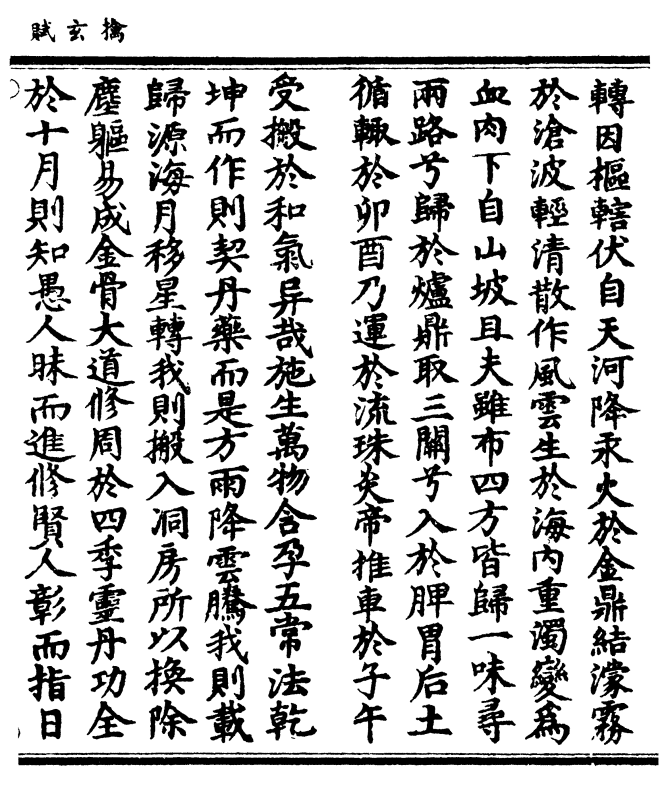 擒玄賦
轉因樞轄伏自天河降汞火於金鼎結濛霧
於滄波輕清散作風雲生於海內重濁變為
血肉下自山坡且夫雖布四方皆歸一味尋
兩路兮歸於爐鼎取三關兮入於脾胃后土
循輙於卯酉乃運於流珠炎帝推車於子午
受搬於和氣异哉施生萬物含孕五常法乾
坤而作則契丹藥而是方雨降雲騰我則載
歸源海月移星轉我則搬入洞房所以換除
塵軀易成金骨大道修周於四季靈丹功全
於十月則知愚人昧而進修賢人彰而指日